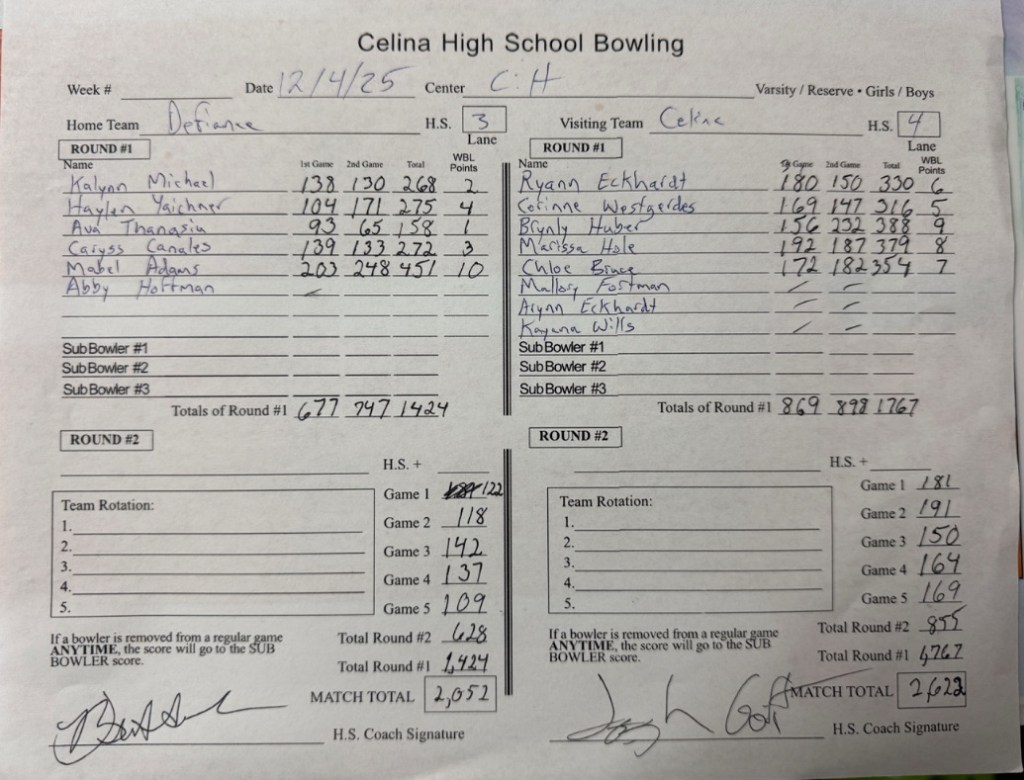 Celina High School Bowling
Week # Date 12/4/25 Center C:H Varsity / Reserve • Girls / Boys
Home Team Defiance H.S. 3 Lane
Visiting Team Celina H.S. 4 Lane
ROUND #1
Name 1st Game 2nd Game Total WBL Points
Kalynn Michael 138 130 268 2
Haylen Yaichner 104 171 275 4
Ava Thanasiu 93 65 158 1
Caryss Canales 139 133 272 3
Mabel Adams 203 248 451 10
Abby Hoffman
SubBowler #1
SubBowler #2
SubBowler #3
Totals of Round #1 677 747 1424
ROUND #1
Name Game 2nd Game Total WBL Points
Ryann Eckhardt 180 150 330 6
Corinne Westgerdes 169 147 316 5
Brynly Huber 156 232 388 9
Marissa Hole 192 187 379 8
Chloe Bruce 172 182 354 7
Mallory Fortman
Arynn Eckhardt
Kayana Wills
SubBowler #1
SubBowler #2
SubBowler #3
Totals of Round #1 869 898 1767
ROUND #2
H.S. +
Team Rotation:
1.
2.
3.
4.
5.
Game 1 122
Game 2 118
Game 3 142
Game 4 137
Game 5 109
If a bowler is removed from a regular game
ANYTIME, the score will go to the SUB
BOWLER score.
Total Round #2 628
Total Round #1 1,424
MATCH TOTAL 2,052
H.S. Coach Signature
ROUND #2
H.S. +
Team Rotation:
1.
2.
3.
4.
5.
Game 1 181
Game 2 191
Game 3 150
Game 4 164
Game 5 169
If a bowler is removed from a regular game
ANYTIME, the score will go to the SUB
BOWLER score.
Total Round #2 855
Total Round #1 1,767
MATCH TOTAL 2,622
H.S. Coach Signature